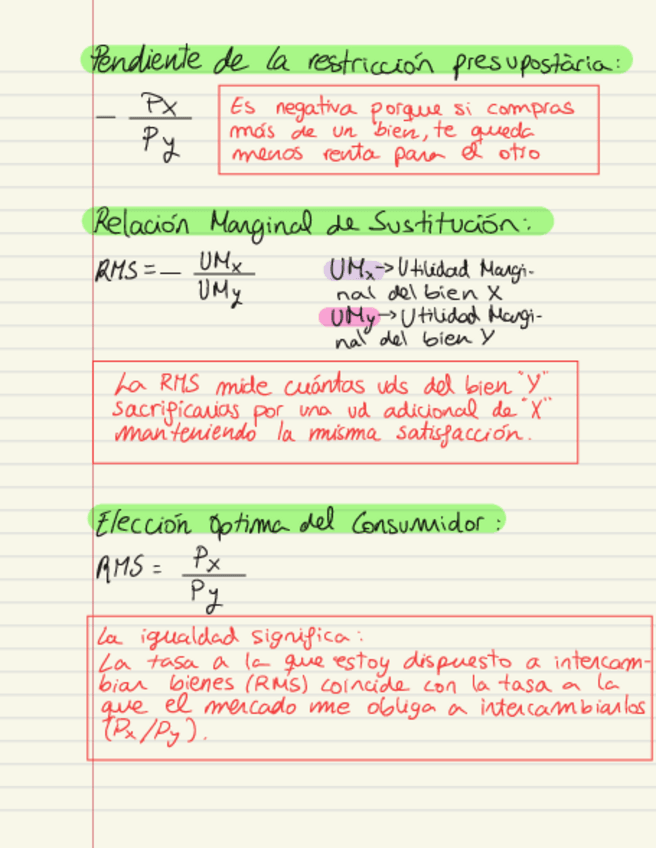 Pendiente de la restricción presupostària:
- Px / Py
Es negativa porque si compras
más de un bien, te queda
menos renta para el otro
Relación Marginal de Sustitución:
RMS = - UMx / UMy
UMx → Utilidad Margi-
nal del bien X
UMy → Utilidad Margi-
nal del bien Y
La RMS mide cuántas uds del bien "Y"
sacrificarias por una ud adicional de "X"
manteniendo la misma satisfacción.
Elección óptima del Consumidor:
RMS = Px / Py
La igualdad significa:
La tasa a la que estoy dispuesto a intercam-
biar bienes (RMS) coincide con la tasa a la
que el mercado me obliga a intercambiarlos
(Px/Py).